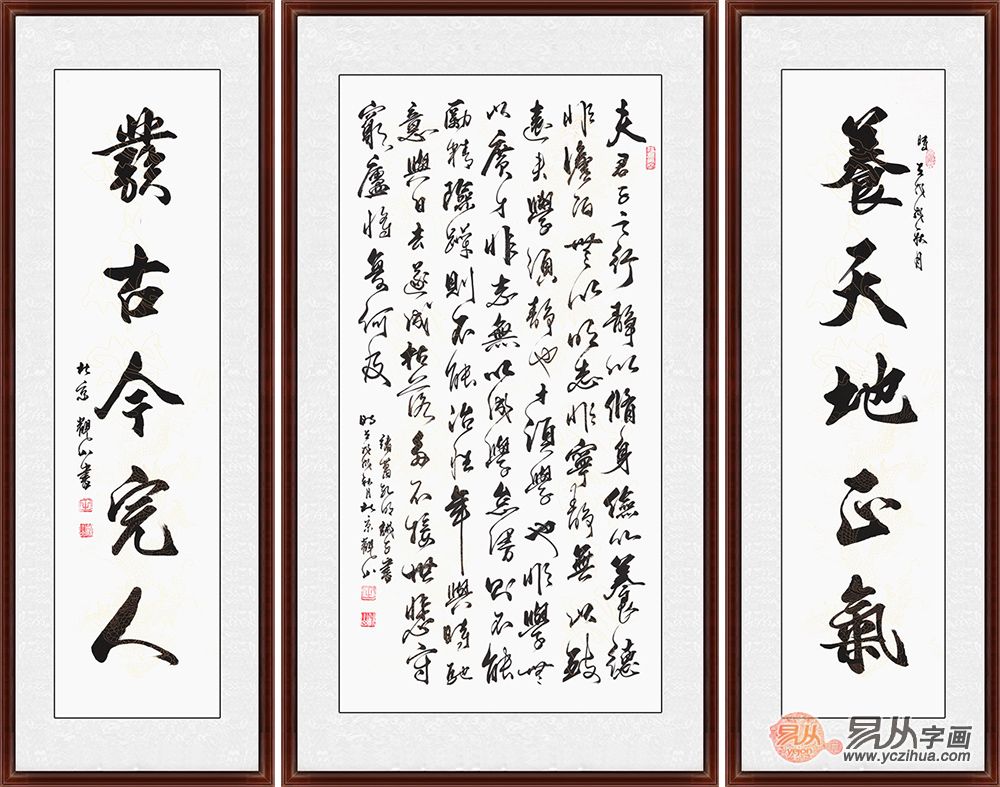 養天地正氣
時在戊戌秋月
夫君子之行靜以脩身儉以養德
非澹泊無以明志非寧靜無以致
遠夫學須靜也才須學也非學無
以廣才非志無以成學怠慢則不能
勵精險躁則不能冶性年與時馳
意與日去遂成枯落多不接世悲守
窮廬將復何及
諸葛孔明誡子書
時在戊戌秋月北京觀山
古今完人
北京觀山書
易从字画
yejon
www.yczihua.com